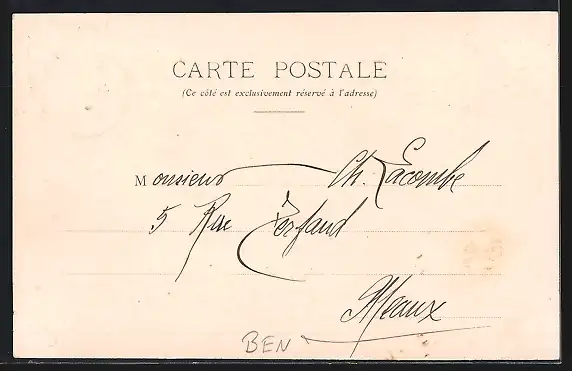 CARTE POSTALE
(Ce côté est exclusivement réservé à l'adresse)
Monsieur Ch. Lacombe
5 Rue
Meaux
BEN